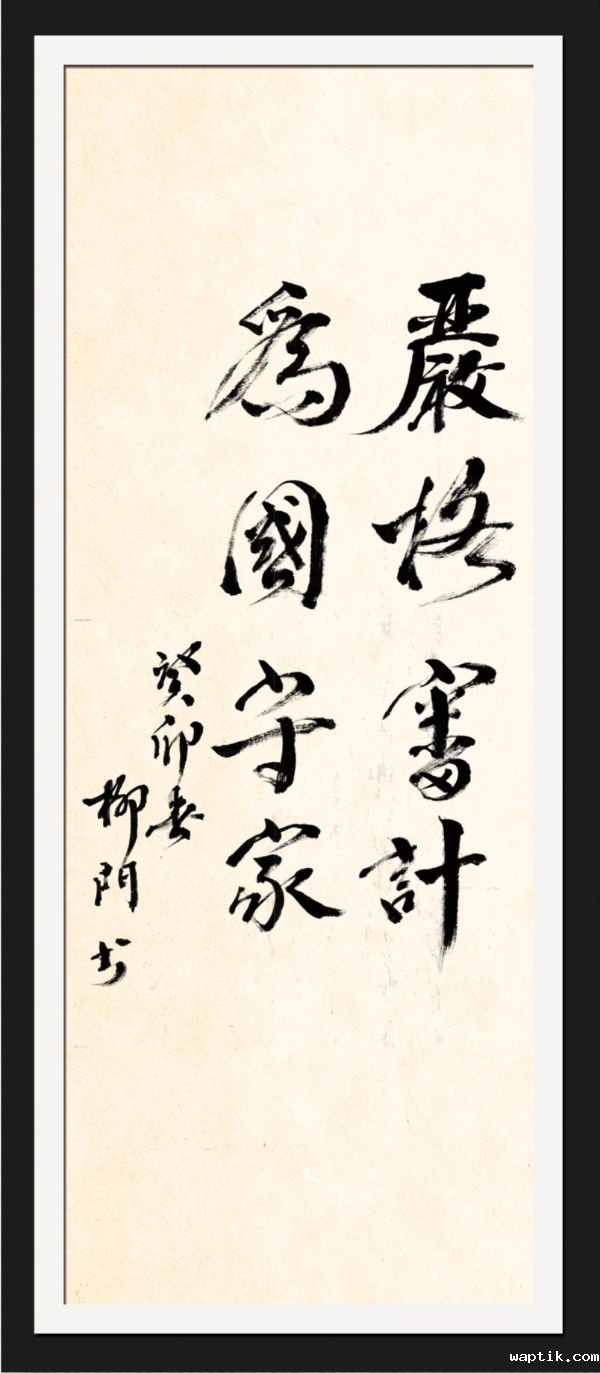 嚴格審計
爲國守家
癸卯春
柳門书
waptik.com